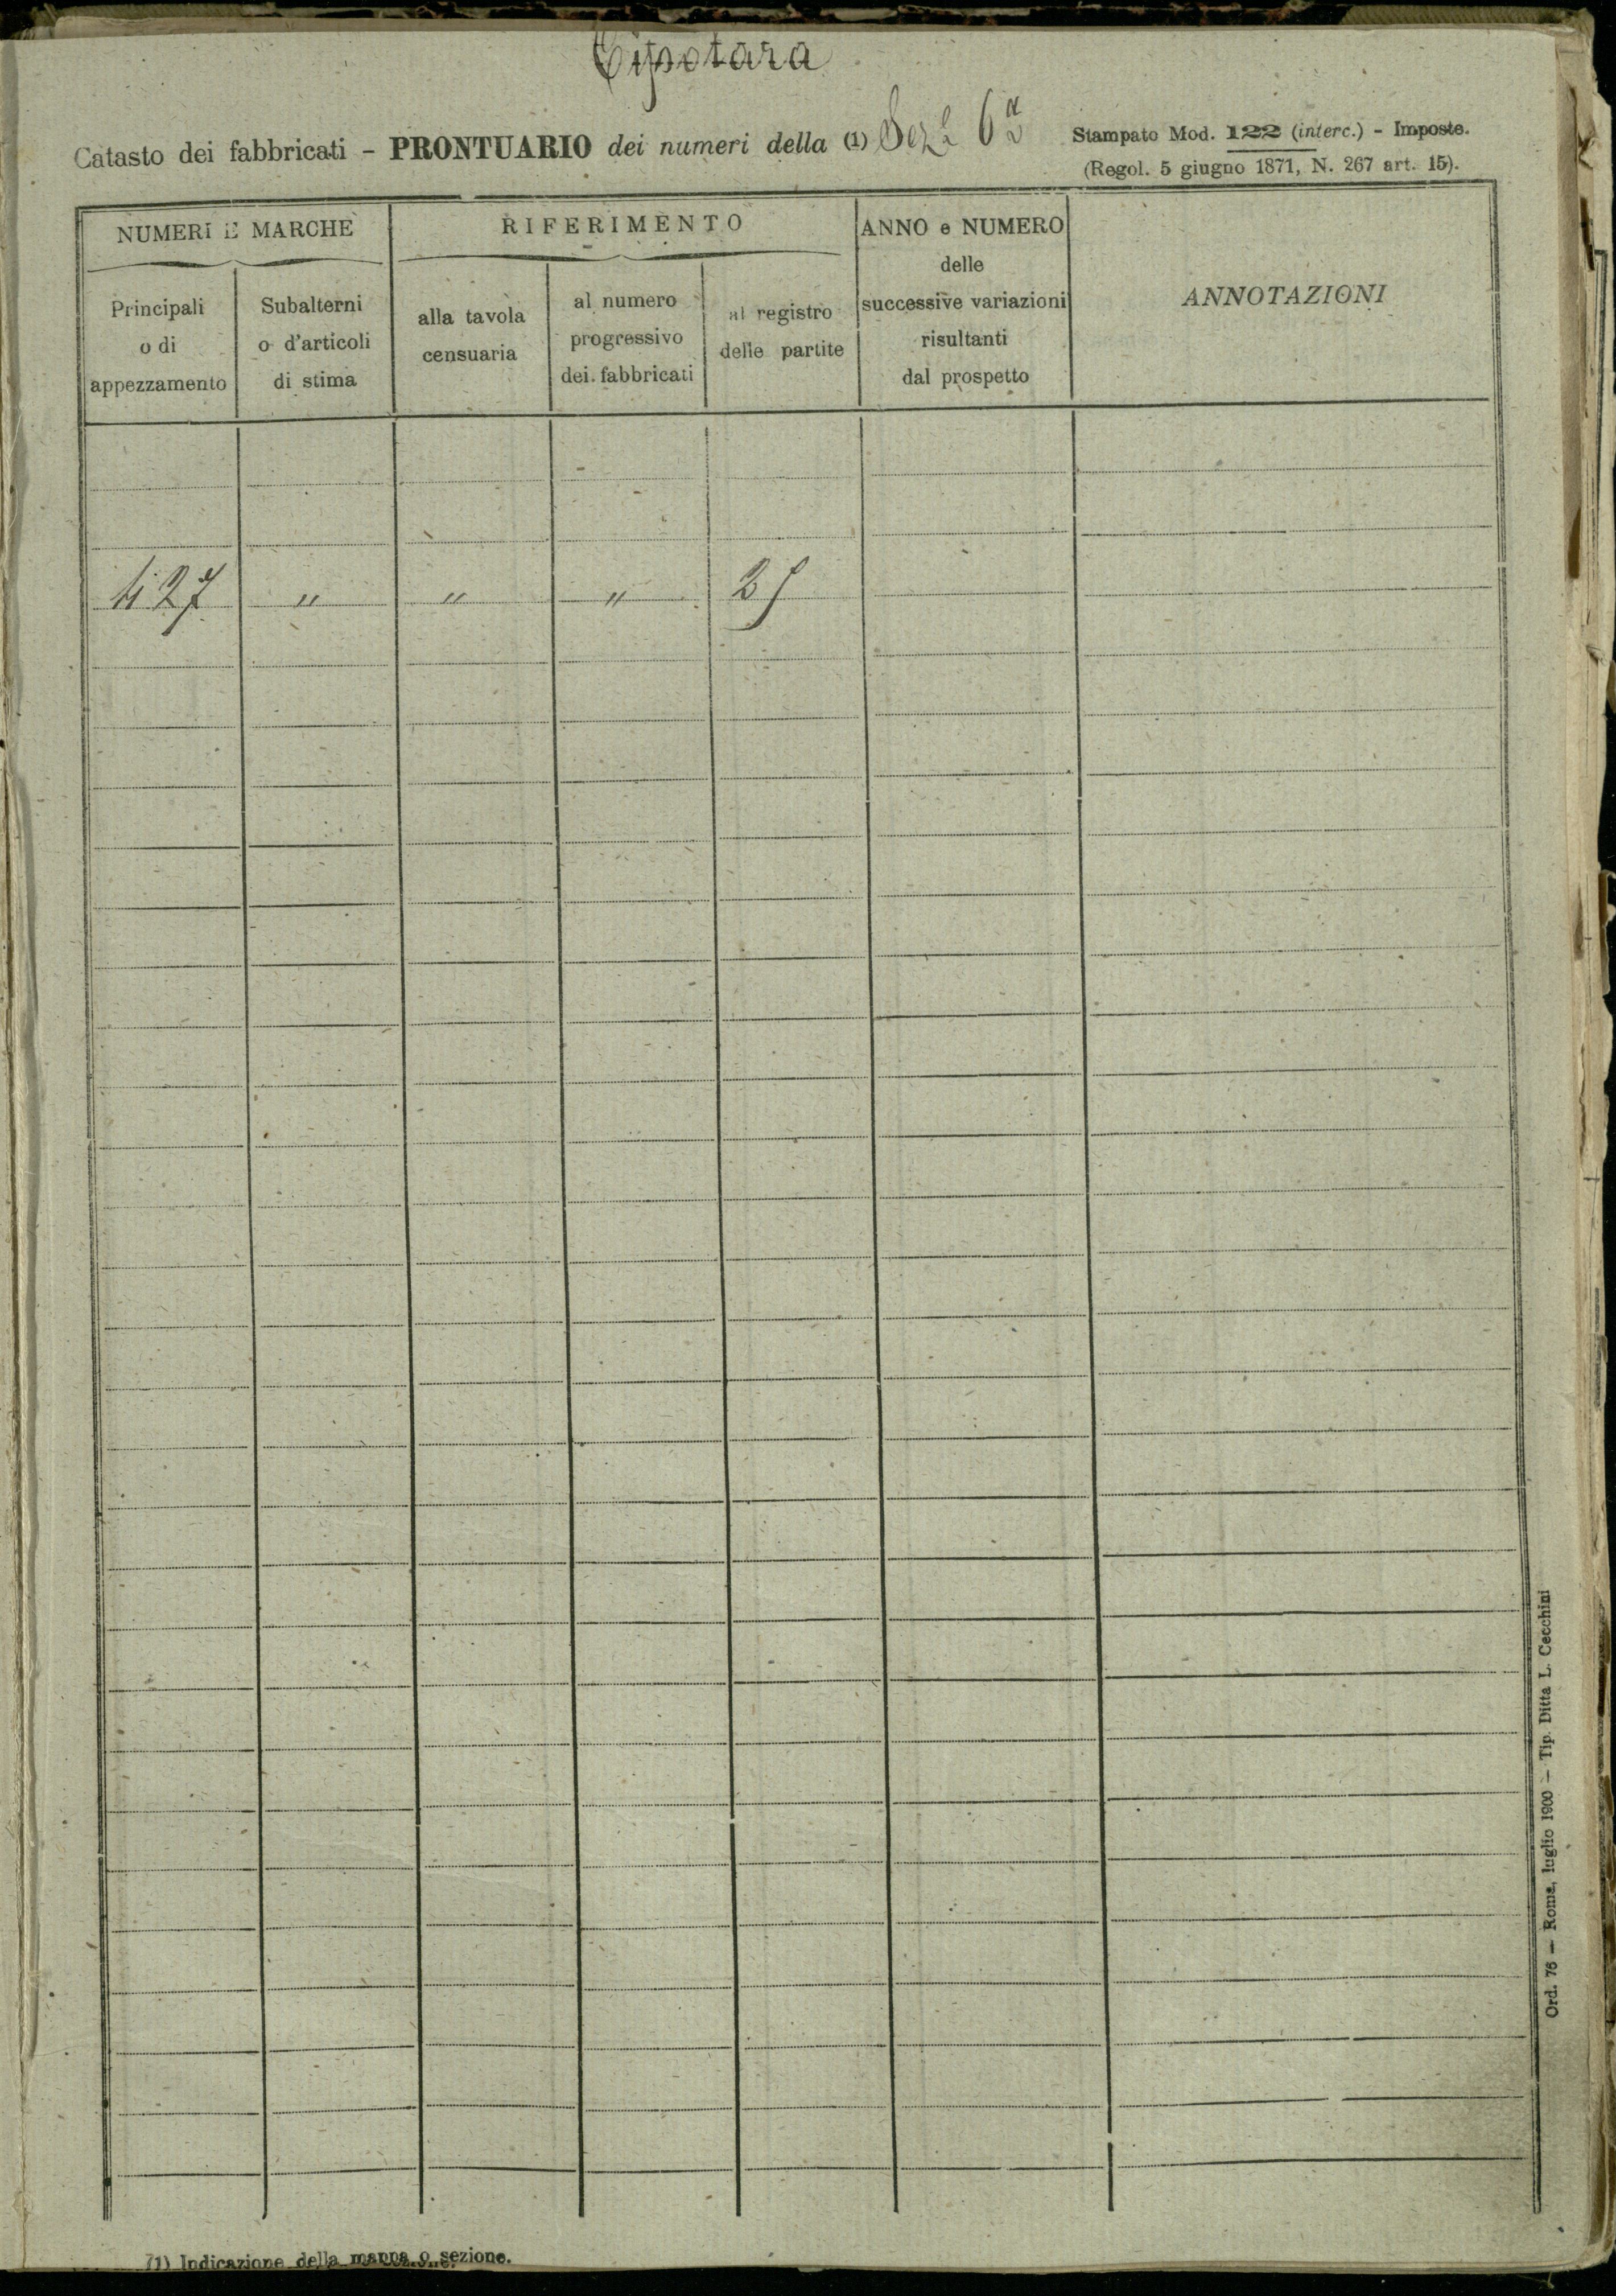 Cipotara
Catasto dei fabbricati - PRONTUARIO dei numeri della (1) Sez.e 6a
Stampato Mod. 122 (interc.) - Imposte.
(Regol. 5 giugno 1871, N. 267 art. 15).
NUMERI E MARCHE
RIFERIMENTO
ANNO e NUMERO
delle
successive variazioni
risultanti
dal prospetto
ANNOTAZIONI
Principali
o di
appezzamento
Subalterni
o d'articoli
di stima
alla tavola
censuaria
al numero
progressivo
dei fabbricati
al registro
delle partite
427 " " " 25
Ord. 76 — Roma, luglio 1900 — Tip. Ditta L. Cecchini
(1) Indicazione della mappa o sezione.